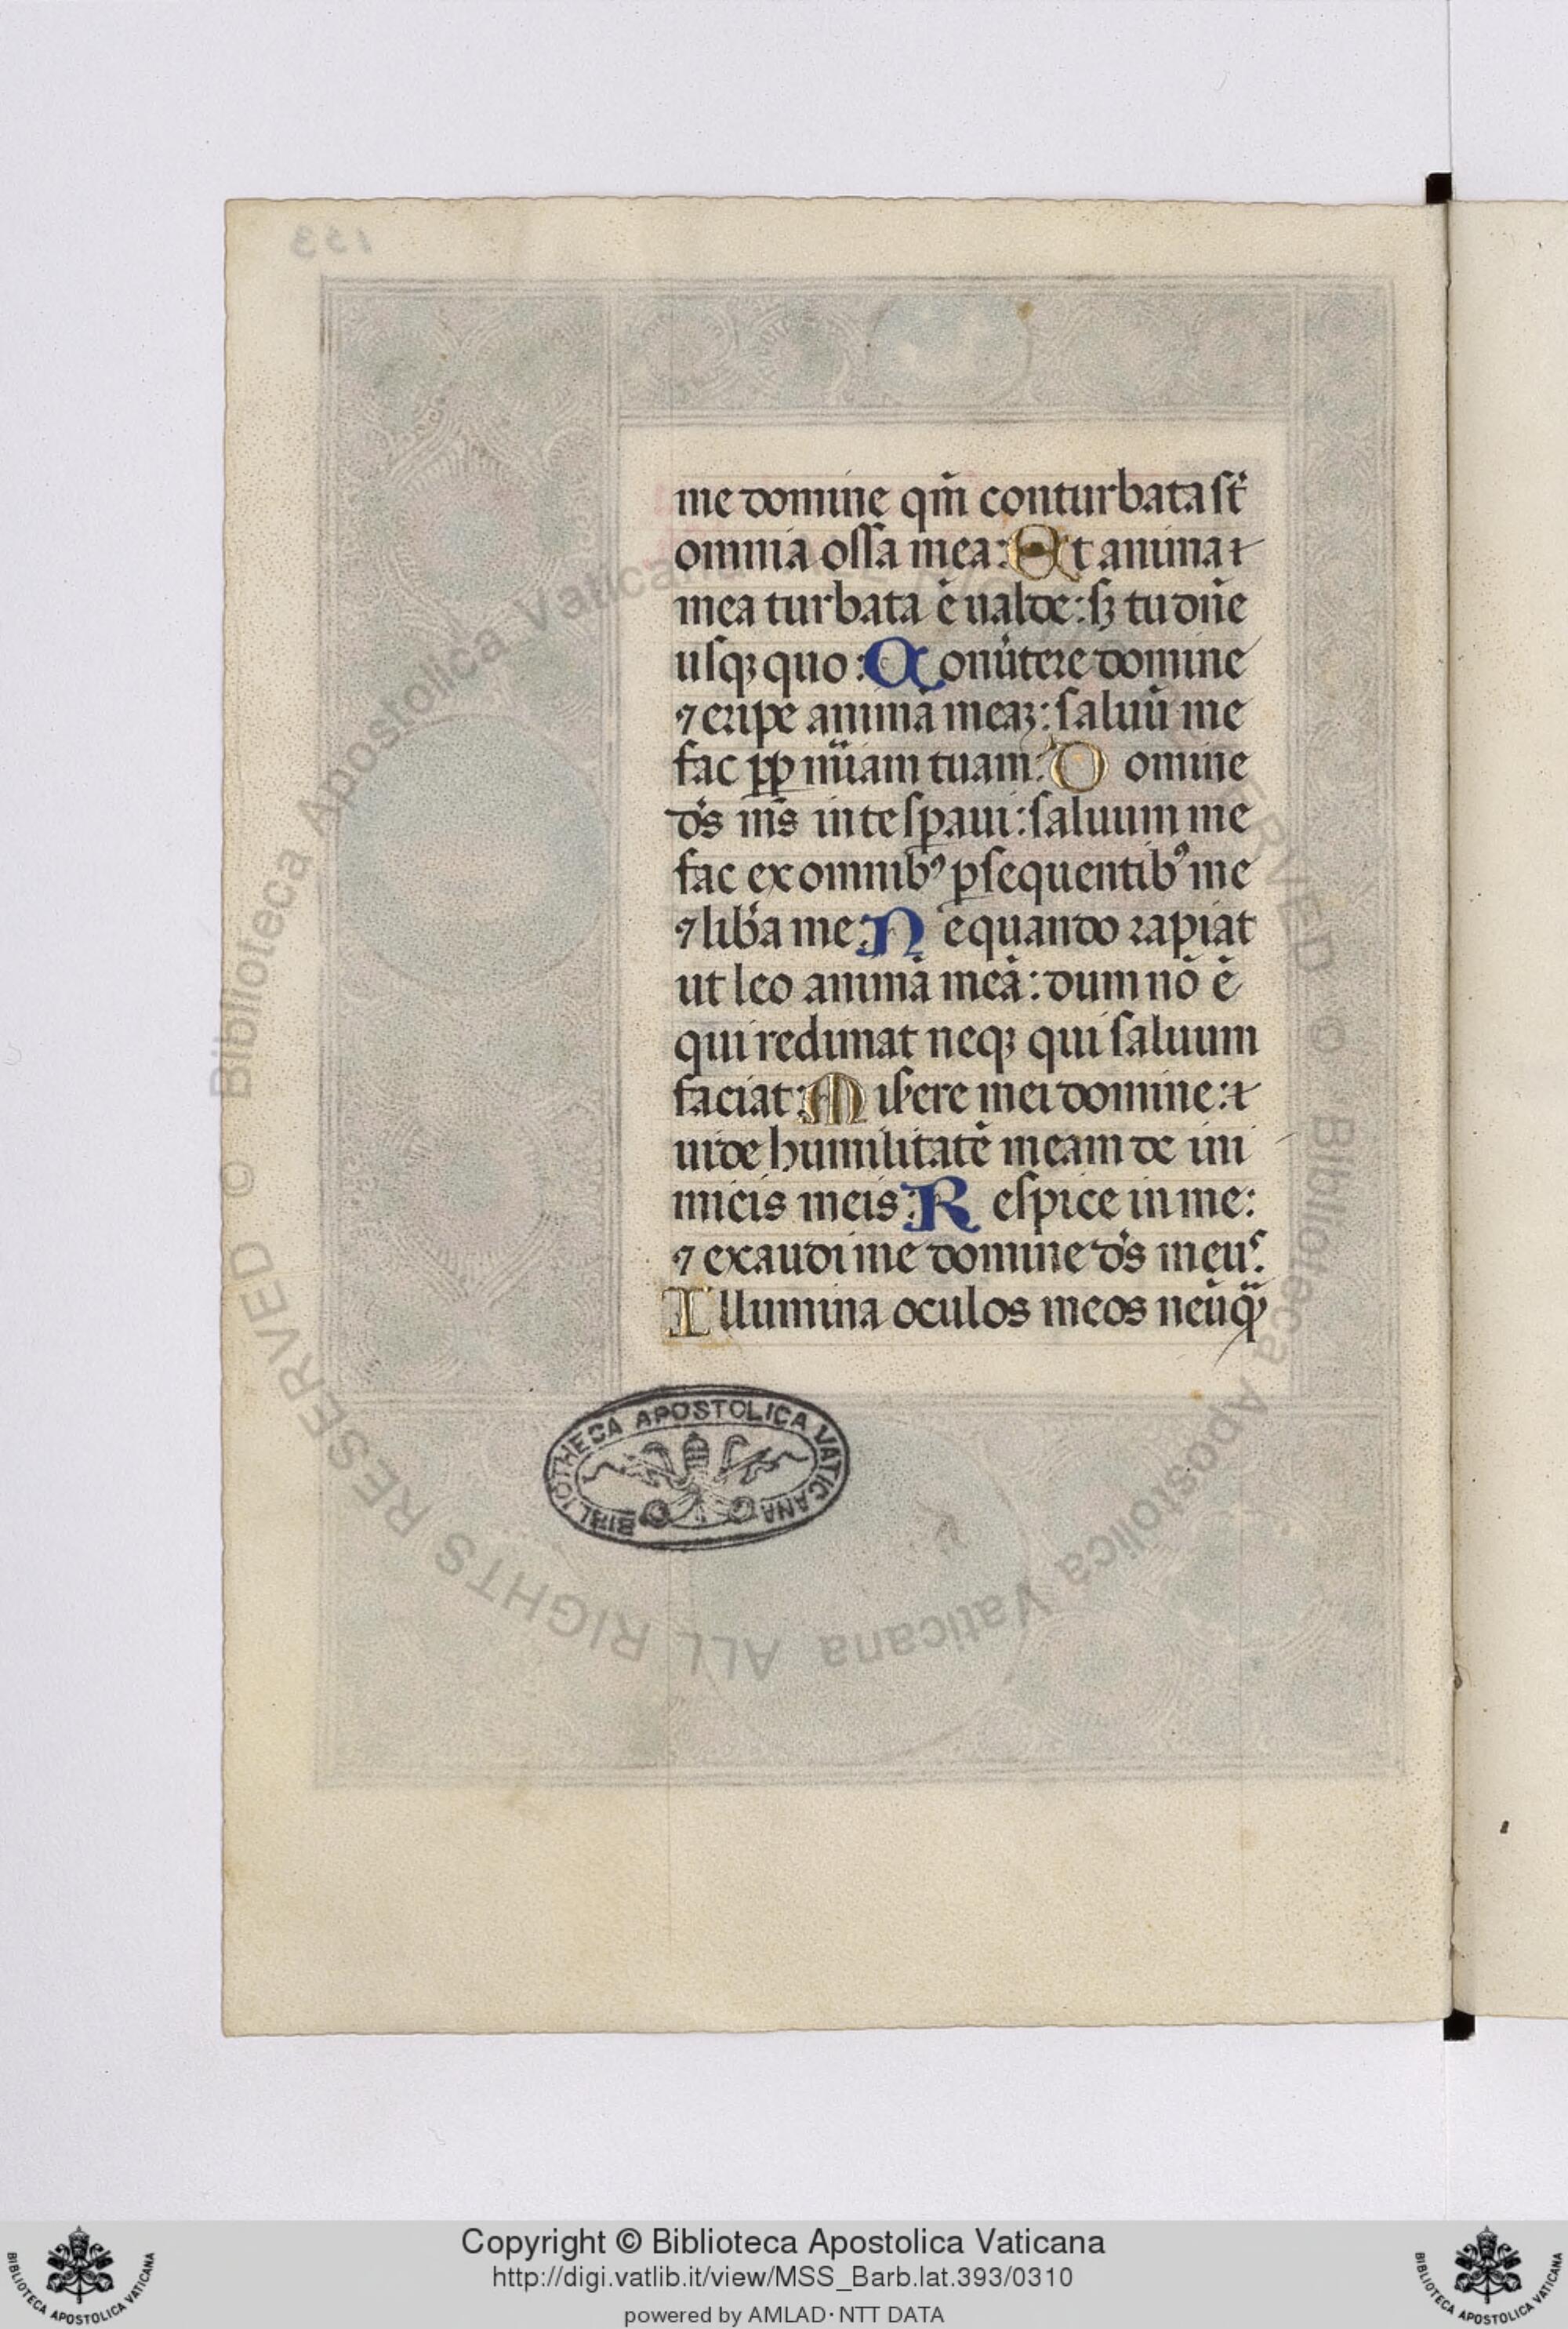 me domine qm̄ conturbata st̄
omnia ossa mea: Et anima ⁊
mea turbata ē ualde: sȝ tu dn̄e
usqȝ quo: Conũtere domine
⁊ eripe animā meaȝ: saluū me
fac ꝓp mĩam tuam: Domine
ds̄ ms̄ in te sꝑaui: saluum me
fac ex omnibꝰ ꝑsequentibꝰ me
⁊ lib̃a me: Ne quando rapiat
ut leo animā meā: dum nō ē
qui redimat neqȝ qui saluum
faciat: Mis̃ere mei domine: ⁊
uide humilitatē meam de ini
micis meis: Respice in me:
⁊ exaudi me domine ds̄ meus:
Illumina oculos meos neũq̃
BIBLIOTHECA APOSTOLICA VATICANA
133
Biblioteca Apostolica Vaticana
ALL RIGHTS RESERVED © Biblioteca Apostolica Vaticana
Copyright © Biblioteca Apostolica Vaticana
http://digi.vatlib.it/view/MSS_Barb.lat.393/0310
powered by AMLAD·NTT DATA
BIBLIOTECA APOSTOLICA VATICANA
BIBLIOTECA APOSTOLICA VATICANA